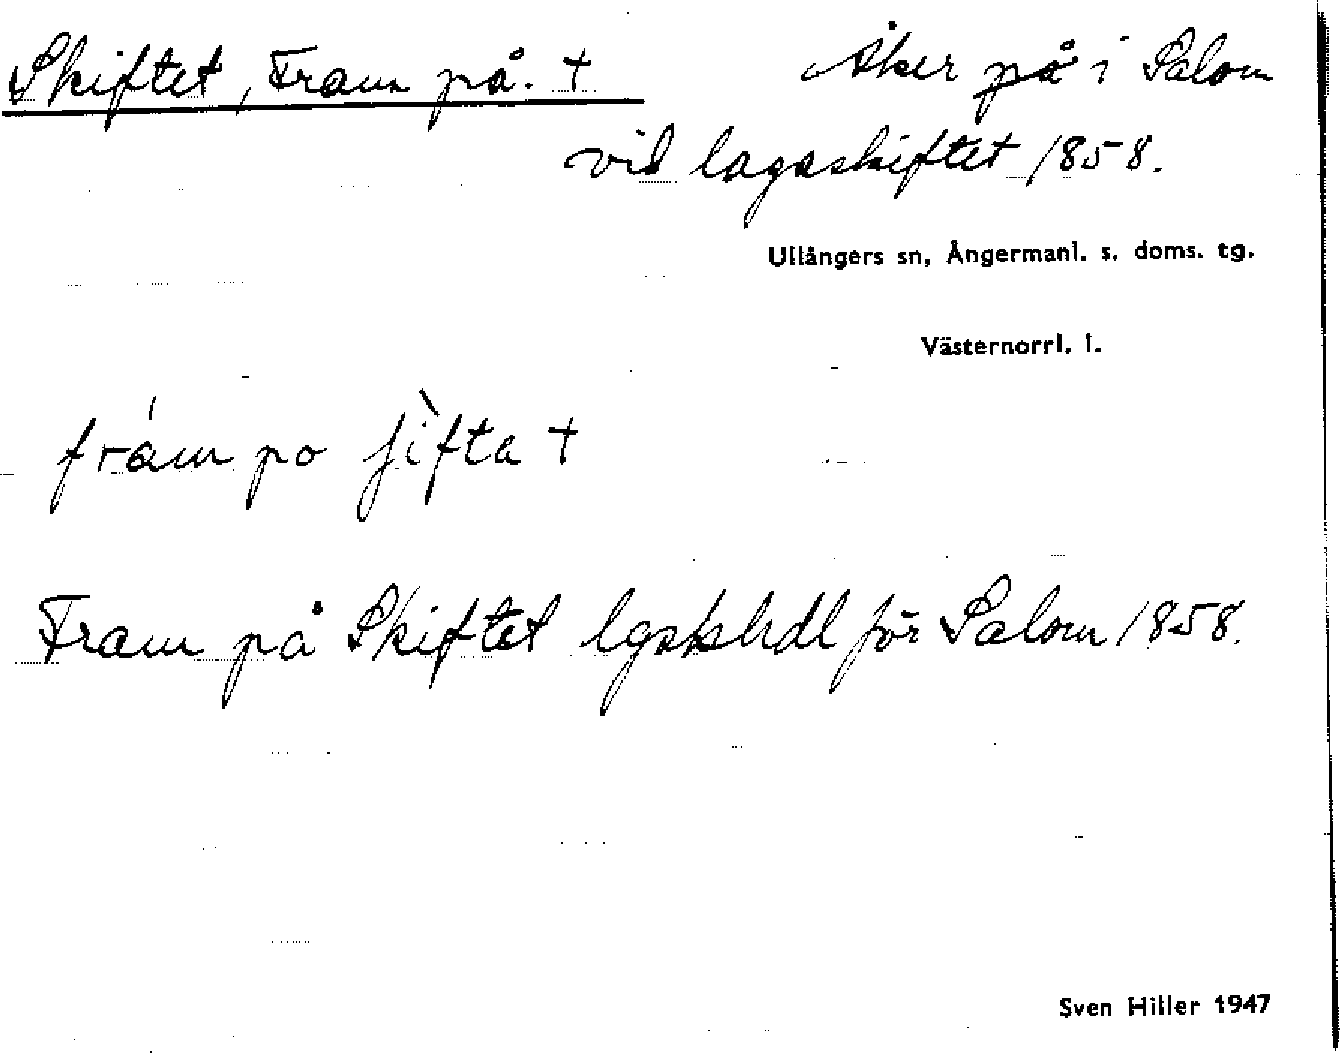 Skiftet, Fram på. † Åker på i Salom
vid lagaskiftet 1858.
Ullångers sn, Ångermanl. s. doms. tg.
Västernorrl. l.
fra´m po ʃìfta †
Fram på Skiftet lgskhdl för Salom 1858.
Sven Hiller 1947